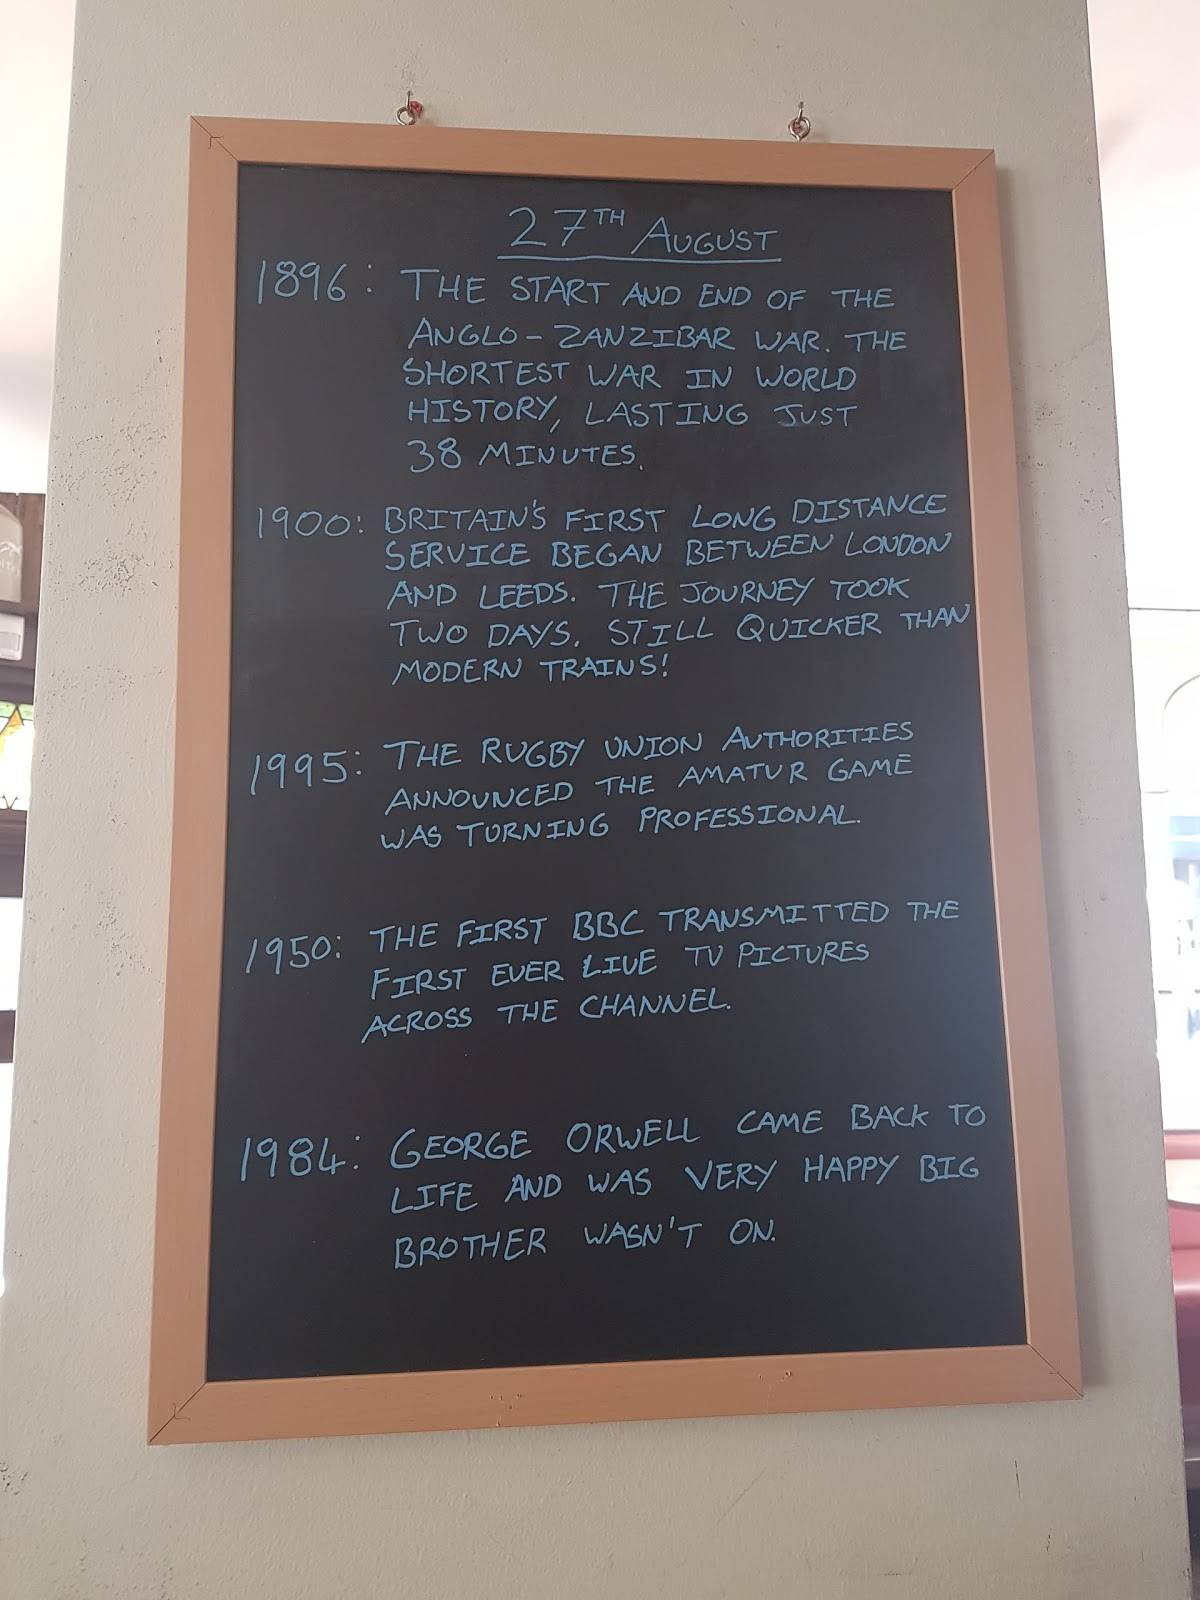 27TH AUGUST
1896: THE START AND END OF THE
ANGLO-ZANZIBAR WAR. THE
SHORTEST WAR IN WORLD
HISTORY, LASTING JUST
38 MINUTES.
1900: BRITAIN'S FIRST LONG DISTANCE
SERVICE BEGAN BETWEEN LONDON
AND LEEDS. THE JOURNEY TOOK
TWO DAYS. STILL QUICKER THAN
MODERN TRAINS!
1995: THE RUGBY UNION AUTHORITIES
ANNOUNCED THE AMATUR GAME
WAS TURNING PROFESSIONAL.
1950: THE FIRST BBC TRANSMITTED THE
FIRST EVER LIVE TV PICTURES
ACROSS THE CHANNEL.
1984: GEORGE ORWELL CAME BACK TO
LIFE AND WAS VERY HAPPY BIG
BROTHER WASN'T ON.